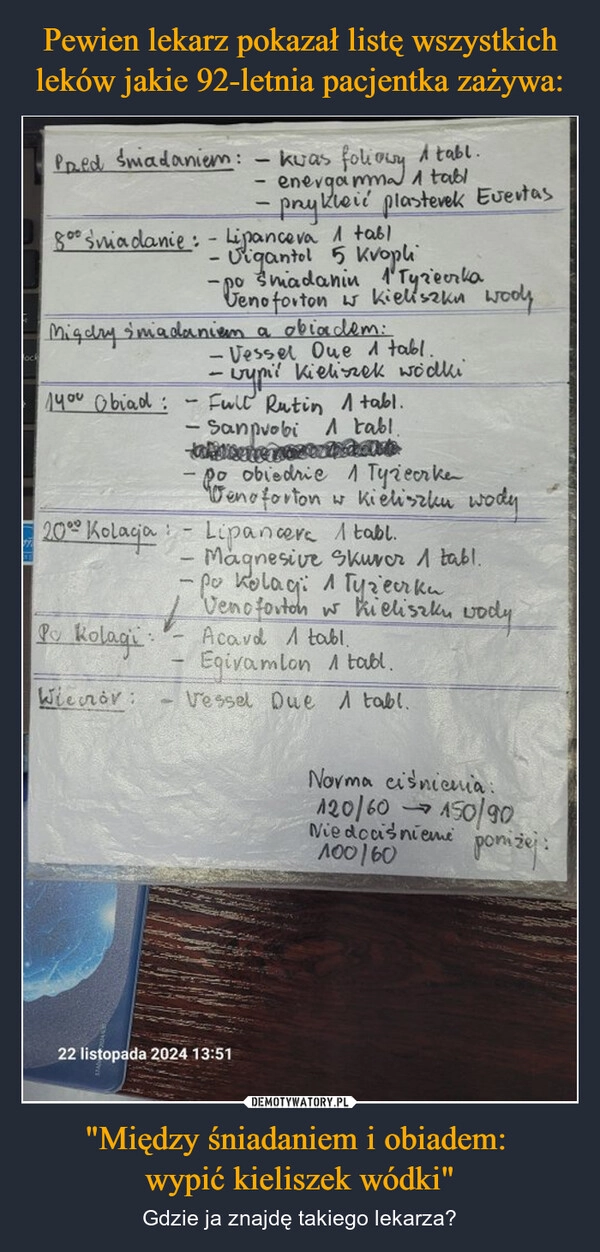 Pewien lekarz pokazał listę wszystkich
leków jakie 92-letnia pacjentka zażywa:
Przed śniadaniem: - kwas foliowy 1 tabl.
- energamma 1 tabl
- przykleić plasterek Evertas
8⁰⁰ śniadanie: - Lipancera 1 tabl
- Vigantol 5 kropli
- po śniadaniu 1 Łyżeczka
Venoforton w kieliszku wody
Między śniadaniem a obiadem:
- Vessel Due 1 tabl.
- wypić kieliszek wódki
14⁰⁰ Obiad: - Full Rutin 1 tabl.
- Sanprobi 1 tabl.
- po obiedzie 1 Łyżeczka
Venoforton w kieliszku wody
20⁰⁰ Kolacja: - Lipancera 1 tabl.
- Magnesive Skurcz 1 tabl.
- po kolacji 1 Łyżeczka
Venoforton w kieliszku wody
Po kolacji: - Acard 1 tabl.
- Egiramlon 1 tabl.
Wieczór: - Vessel Due 1 tabl.
Norma ciśnienia:
120/60 → 150/90
Niedociśnienie poniżej:
100/60
22 listopada 2024 13:51
DEMOTYWATORY.PL
"Między śniadaniem i obiadem:
wypić kieliszek wódki"
Gdzie ja znajdę takiego lekarza?